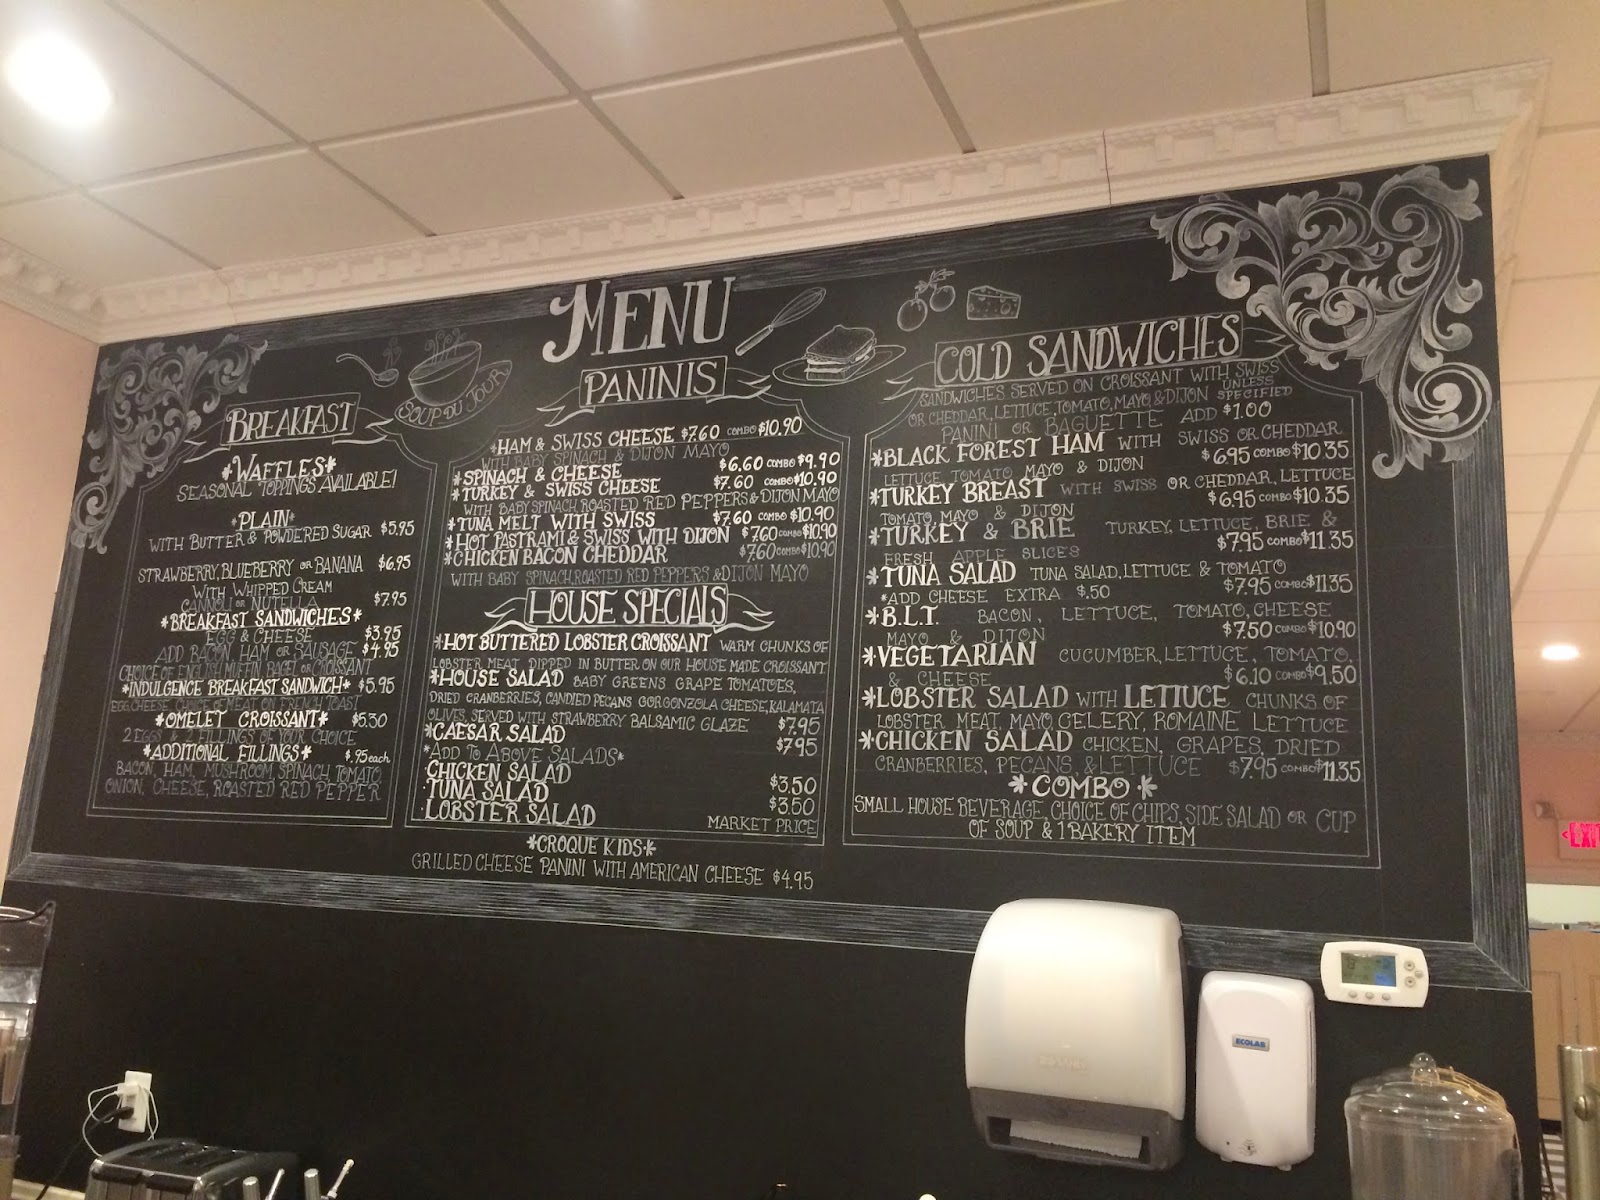 MENU
SOUP DU JOUR
BREAKFAST
*WAFFLES*
SEASONAL TOPPINGS AVAILABLE!
*PLAIN*
WITH BUTTER & POWDERED SUGAR $5.95
STRAWBERRY, BLUEBERRY OR BANANA $6.95
WITH WHIPPED CREAM
CANNOLI OR NUTELLA $7.95
*BREAKFAST SANDWICHES*
EGG & CHEESE $3.95
ADD BACON, HAM OR SAUSAGE $4.95
CHOICE OF ENGLISH MUFFIN, BAGEL OR CROISSANT
*INDULGENCE BREAKFAST SANDWICH* $5.95
EGG, CHEESE, CHOICE OF MEAT ON FRENCH TOAST
*OMELET CROISSANT* $5.30
2 EGGS & 2 FILLINGS OF YOUR CHOICE
*ADDITIONAL FILLINGS* $.95 each
BACON, HAM, MUSHROOM, SPINACH, TOMATO
ONION, CHEESE, ROASTED RED PEPPER
PANINIS
*HAM & SWISS CHEESE $7.60 COMBO $10.90
WITH BABY SPINACH & DIJON MAYO
*SPINACH & CHEESE $6.60 COMBO $9.90
*TURKEY & SWISS CHEESE $7.60 COMBO $10.90
WITH BABY SPINACH, ROASTED RED PEPPERS & DIJON MAYO
*TUNA MELT WITH SWISS $7.60 COMBO $10.90
*HOT PASTRAMI & SWISS WITH DIJON $7.60 COMBO $10.90
*CHICKEN BACON CHEDDAR $7.60 COMBO $10.90
WITH BABY SPINACH, ROASTED RED PEPPERS & DIJON MAYO
HOUSE SPECIALS
*HOT BUTTERED LOBSTER CROISSANT WARM CHUNKS OF
LOBSTER MEAT, DIPPED IN BUTTER ON OUR HOUSE MADE CROISSANT
*HOUSE SALAD BABY GREENS GRAPE TOMATOES,
DRIED CRANBERRIES, CANDIED PECANS GORGONZOLA CHEESE, KALAMATA
OLIVES, SERVED WITH STRAWBERRY BALSAMIC GLAZE $7.95
*CAESAR SALAD $7.95
*ADD TO ABOVE SALADS*
CHICKEN SALAD $3.50
TUNA SALAD $3.50
LOBSTER SALAD MARKET PRICE
*CROQUE KIDS*
GRILLED CHEESE PANINI WITH AMERICAN CHEESE $4.95
COLD SANDWICHES
SANDWICHES SERVED ON CROISSANT WITH SWISS
OR CHEDDAR, LETTUCE, TOMATO, MAYO & DIJON UNLESS SPECIFIED
PANINI OR BAGUETTE ADD $1.00
*BLACK FOREST HAM WITH SWISS OR CHEDDAR
LETTUCE TOMATO MAYO & DIJON $6.95 COMBO $10.35
*TURKEY BREAST WITH SWISS OR CHEDDAR, LETTUCE
TOMATO, MAYO & DIJON $6.95 COMBO $10.35
*TURKEY & BRIE TURKEY, LETTUCE, BRIE &
FRESH APPLE SLICES $7.95 COMBO $11.35
*TUNA SALAD TUNA SALAD, LETTUCE & TOMATO
*ADD CHEESE EXTRA $.50 $7.95 COMBO $11.35
*B.L.T. BACON, LETTUCE, TOMATO, CHEESE
MAYO & DIJON $7.50 COMBO $10.90
*VEGETARIAN CUCUMBER, LETTUCE, TOMATO,
& CHEESE $6.10 COMBO $9.50
*LOBSTER SALAD WITH LETTUCE CHUNKS OF
LOBSTER MEAT, MAYO, CELERY, ROMAINE LETTUCE
*CHICKEN SALAD CHICKEN, GRAPES, DRIED
CRANBERRIES, PECANS, & LETTUCE $7.95 COMBO $11.35
*COMBO*
SMALL HOUSE BEVERAGE, CHOICE OF CHIPS, SIDE SALAD OR CUP
OF SOUP & 1 BAKERY ITEM
ECOLAB
EXIT